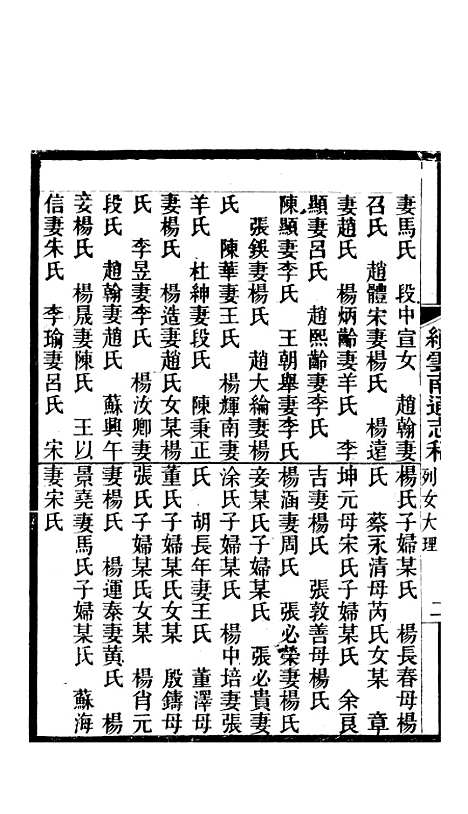 續雲南通志稿 列女大理 二
妻馬氏 段中宣女 趙翰妻
召氏 趙體宋妻楊氏 楊遠
妻趙氏 楊炳齡妻羊氏 李
顯妻呂氏 趙熙齡妻李氏
陳顯妻李氏 王朝舉妻李氏
張鍈妻楊氏 趙大綸妻楊
氏 陳華妻王氏 楊輝南妻
羊氏 杜紳妻段氏 陳秉正
妻楊氏 楊造妻趙氏女某楊
氏 李昱妻李氏 楊汝卿妻
段氏 趙翰妻趙氏 蘇興午
妾楊氏 楊晟妻陳氏 王以
信妻朱氏 李瑜妻呂氏 宋
楊氏子婦某氏 楊長春母楊
氏 蔡永清母芮氏女某 章
坤元母宋氏子婦某氏 余良
吉妻楊氏 張敦善母楊氏
楊涵妻周氏 張必榮妻楊氏
妾某氏子婦某氏 張必貴妻
涂氏子婦某氏 楊中培妻張
氏 胡長年妻王氏 董澤母
董氏子婦某氏女某 殷鑄母
張氏子婦某氏女某 楊肖元
妻楊氏 楊運泰妻黃氏 楊
景堯妻馬氏子婦某氏 蘇海
妻宋氏